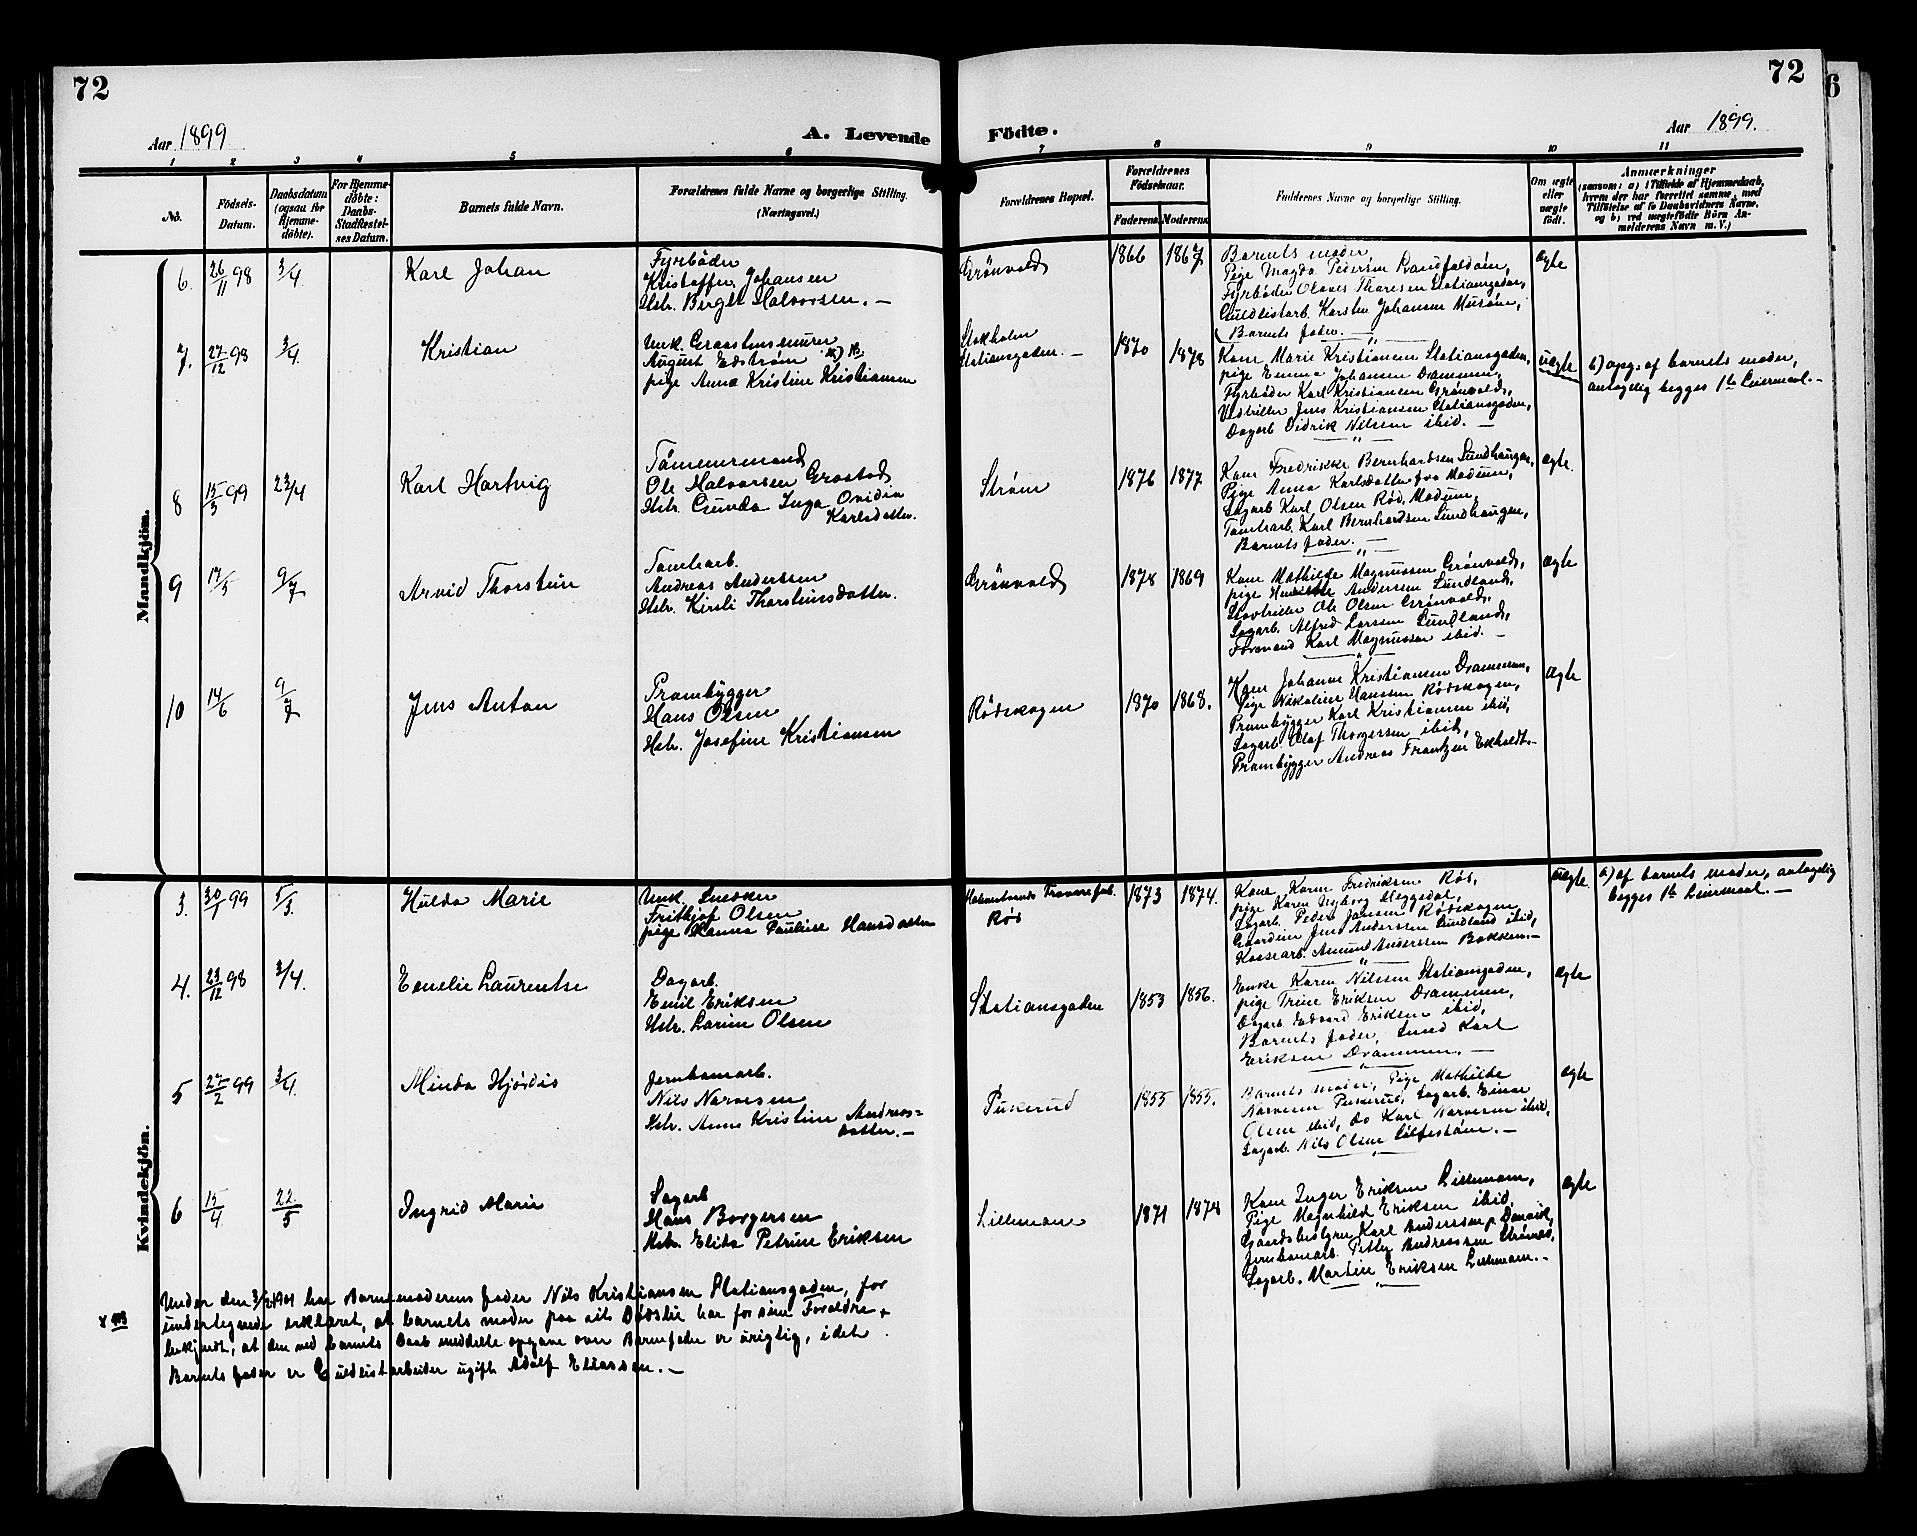 72
72
6
Aar 1899
A. Levende
Födte.
Aar 1899.
1 2 3 4 5 6 7 8 9 10 11
No.
Födsels-
Datum.
Daabsdatum
(ogsaa for
Hjemme-
döbte).
For Hjemme-
döbte:
Daabs-
Stadfæstel-
ses Datum.
Barnets fulde Navn.
Forældrenes fulde Navne og borgerlige Stilling.
(Næringsvei.)
Forældrenes Bopæl.
Forældrenes
Födselsaar.
Faderens. Moderens.
Faddernes Navne og borgerlige Stilling.
Om ægte
eller
uægte
födt.
Anmærkninger
(saasom: a) i Tilfælde af Hjemmedaab,
hvem der har forrettet samme, med
Tilföielse af to Daabsvidners Navne,
og b) ved uægtefödte Börn An-
melderens Navn m. V.)
Mandkjön.
6. 26/11 98 3/4 Karl Johan
Fyrbøder
Kristoffer Johansen
Hstr. Bergte Halvorsen. —
Grønvold 1866 1867
Barnets moder
Pige Magda Pedersen
Fyrbøder Olaves Thoresen Stationsgaden,
Karsten Johansen
Barnets fader. —
ægte
7. 27/12 98 3/4 Kristian
Unk. Graastensmurer
August Edstrøm
pige Anna Kristine Kristiansen
Stokholm
Stationsgaden. — 1870 1878
Kone Marie Kristiansen Stationsgaden,
pige Emma Johansen Drammen,
Fyrbøder Karl Kristiansen Grønvold,
Jens Kristiansen Stationsgaden,
Dagarb Didrik Nilsen ibid. —
uægte
b) opg. af barnets moder,
antagelig begges 1te Leiermaal. —
8 15/3 99 23/4 Karl Hartvig
Tømmermand
Ole Halvorsen Grostad
Hstr. Gunda Inga Ovidia
Karlsdatter.
Strøm 1876 1877
Kone Fredrikke Bernhardsen Sundhaugen,
Pige Anna Karlsdatter fra Modum,
Sagarb Karl Olsen Rød, Modum,
Tomtearb. Karl Bernhardsen Sundhaugen,
Barnets fader. —
ægte.
9 17/5 9/7 Arvid Thorstein
Tomtearb.
Andreas Anderssen
Hstr. Kirsti Thorstensdatter.
Grønvold 1878 1869
Kone Mathilde Magnussen Grønvold,
pige Andersen Lundland,
Ole Olsen Grønvold,
Sagarb. Alfred Larssen Lundland,
Formand Karl Magnussen ibid. —
ægte
10 14/6 9/7 Jens Anton
Prambygger
Hans Olsen
Hstr. Josefine Kristiansen
Rødskogen 1870 1868.
Kone Johanne Kristiansen Drammen,
Pige Nikoline Hanssen Rødskogen,
Prambygger Karl Kristiansen ibid,
Sagarb. Olaf Thorgersen ibid,
Prambygger Andreas Frantzen Ekholt. —
ægte
Kvindekjön.
3. 30/1 99 5/3. Hulda Marie
Unk. Snedker
Fritkjof Olsen
pige Hanna Pauline Hansdatter
Rød 1873 1874.
Kone Karen Fredriksen Rød,
pige Karen Nyborg Meggedal,
Sagarb. Peder Jansen Rødskogen
Jens Anderssen Lundland ibid,
Kassearb. Amund Anderssen Bakken. —
uægte.
a) af barnets moder, antagelig
begges 1te Leiermaal. —
4. 23/12 98 3/4. Emelie Laurentse
Dagarb.
Emil Eriksen
Hstr. Larine Olsen
Stationsgaden 1853 1856.
Enke Karen Nilsen Stationsgaden,
pige Trine Eriksen Drammen,
Dagarb Edvard Eriksen ibid,
Barnets fader, Smed Karl
Eriksen Drammen. —
ægte
5 27/2 99 3/4. Minda Hjørdis
Jernbanearb.
Nils Narvesen
Hstr. Anne Kristine Andreas-
datter. —
Pukerud 1855 1855.
Barnets moder, Pige Mathilde
Narvesen Pukerud, Sagarb. Einar
Olsen ibid, Do Karl Narvesen ibid,
Sagarb. Nils Olsen —
ægte
6 15/4 22/5 Ingrid Marie
Sagarb
Hans Borgersen
Hstr. Elida Petrine Eriksen
Lillemoen 1871 1874
Kone Inger Eriksen Lillemoen,
Pige Magnhild Eriksen ibid,
Gaardsbestyrer Karl Anderssen p. Danvik,
Jernbanearb. Petter Andreassen Strømsø,
Sagarb. Martin Eriksen Lillemoen. —
ægte
Under den 3/2 1901 har Barnemoderens fader Nils Kristiansen Stationsgaden, for
undertegnede erklæret, at barnets moder paa sit Dødsleie har for sine Forældre
bekjendt, at den ved barnets Daab meddelte opgave over Barnefader er urigtig, idet
Barnets fader er Guldlistarbeider ugift Adolf Eliassen. —